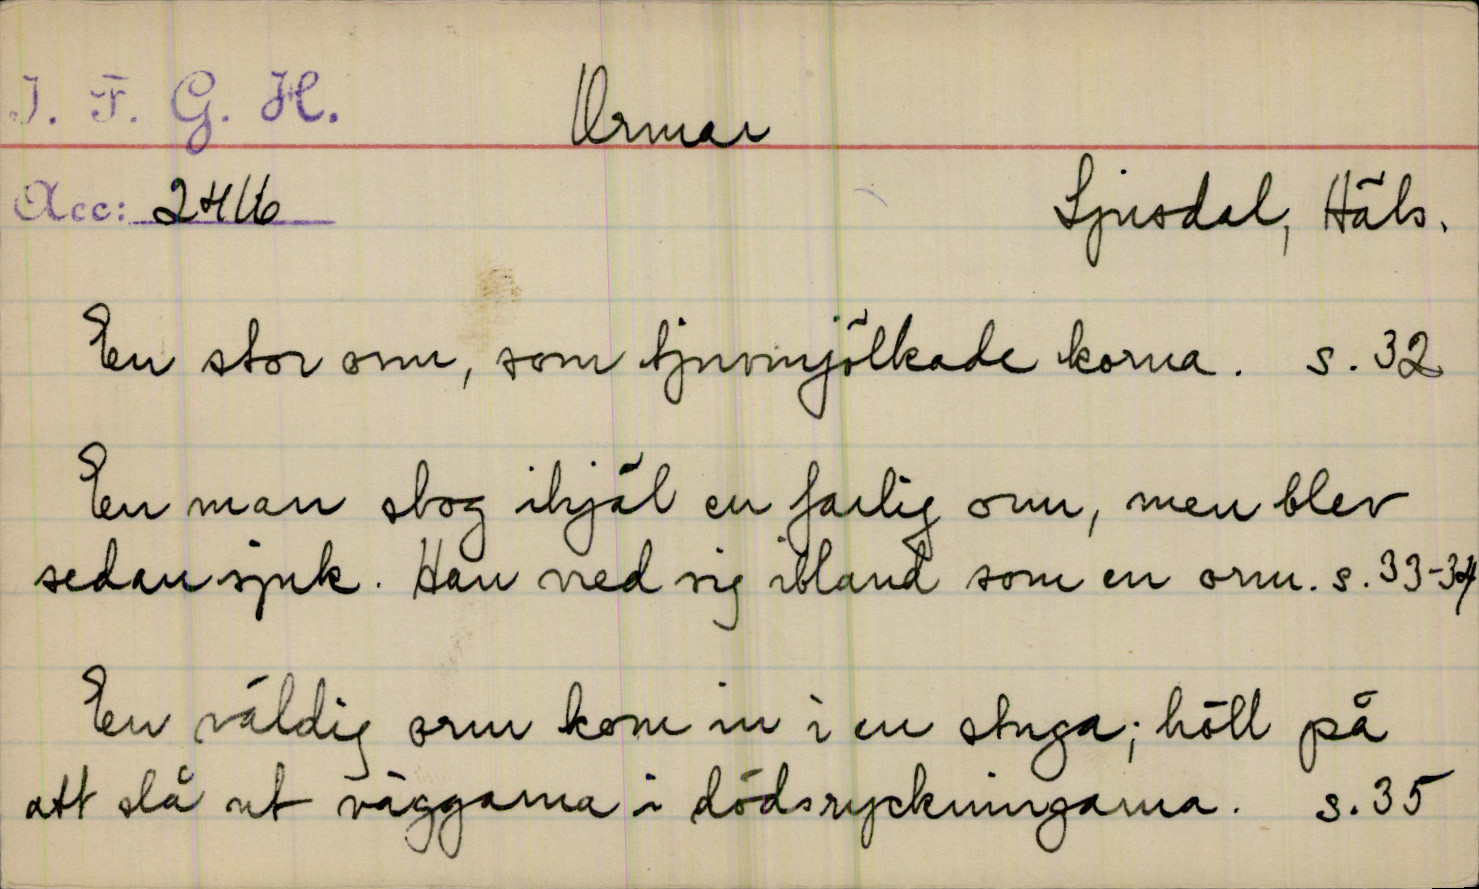 I. F. G. H.
Ormar
Acc: 2416
Ljusdal, Häls.
En stor orm, som tjuvmjölkade korna. s. 32
En man slog ihjäl en farlig orm, men blev
sedan sjuk. Han vred sig ibland som en orm. s. 33-34
En väldig orm kom in i en stuga; höll på
att slå ut väggarna i dödsryckningarna. s. 35